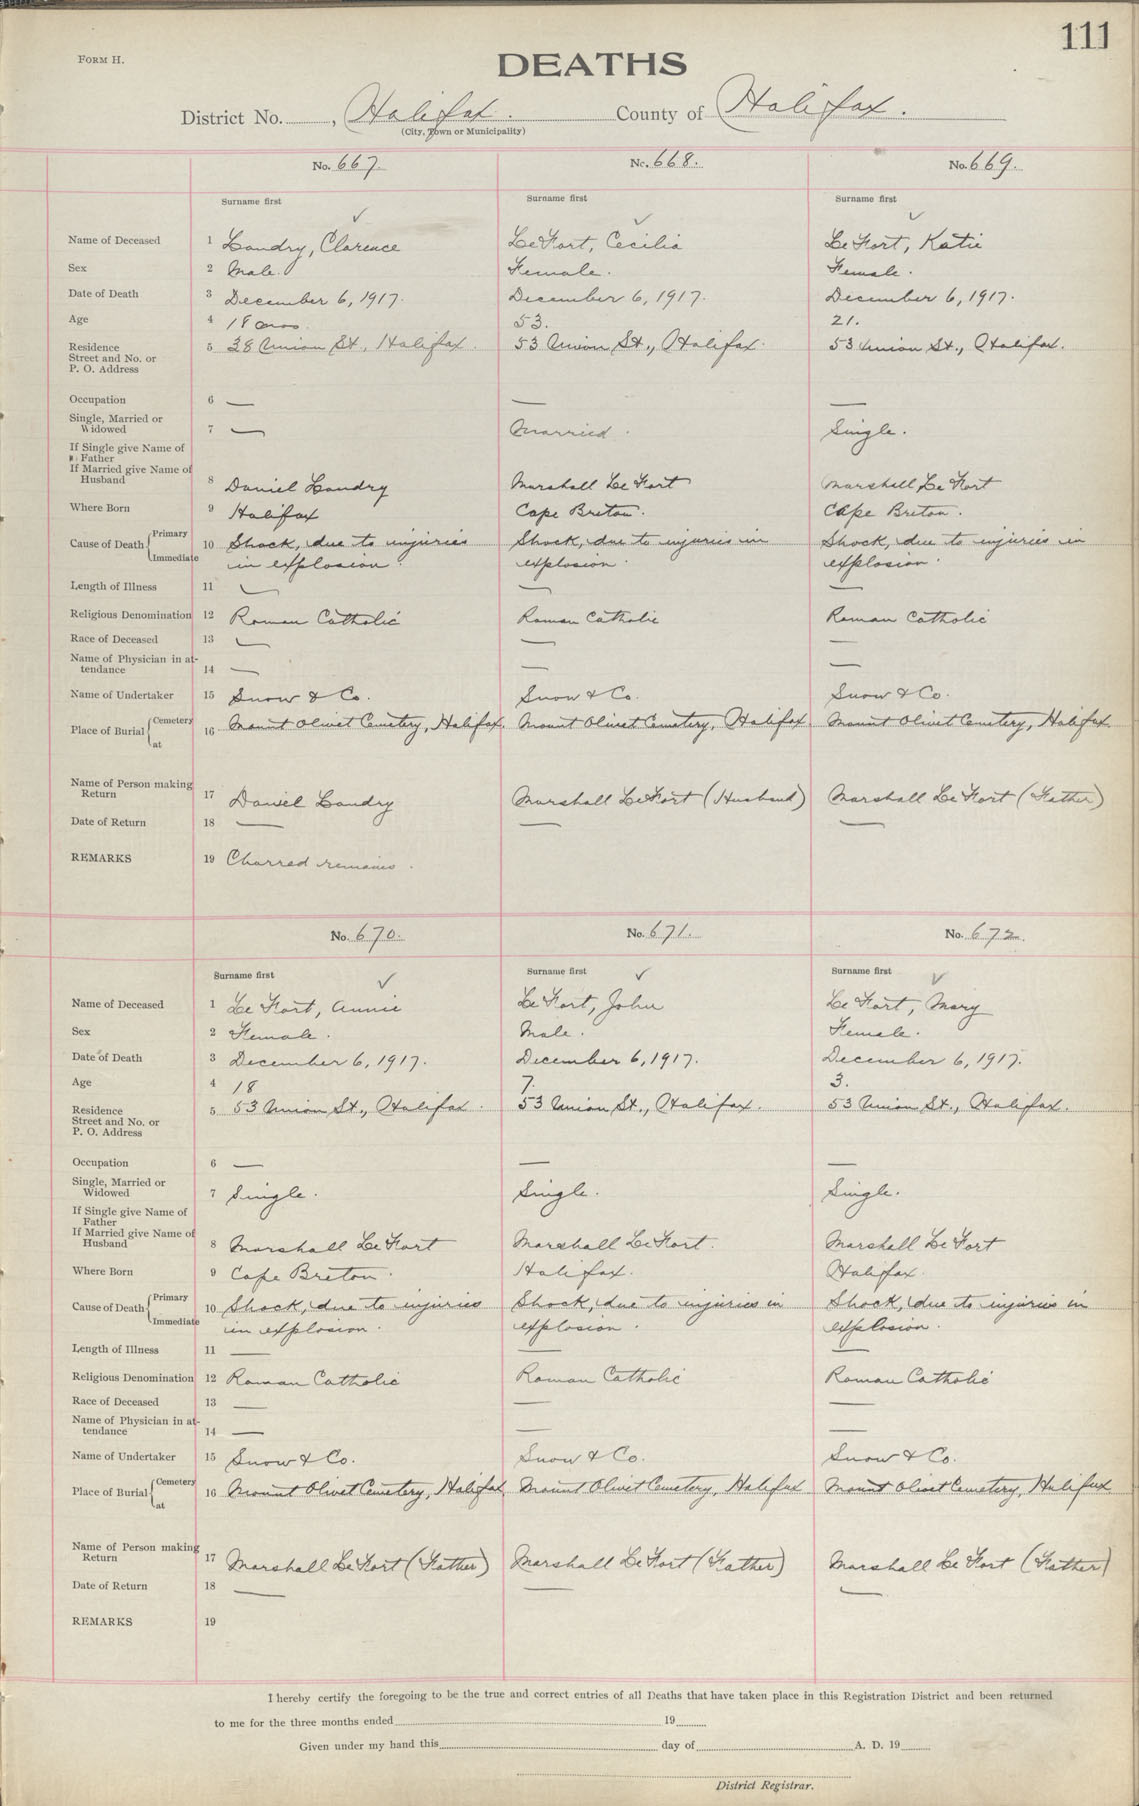 111
FORM H.
DEATHS
District No. , Halifax. County of Halifax.
(City, Town or Municipality)
No. 667. No. 668. No. 669.
Surname first Surname first Surname first
Name of Deceased 1 Landry, Clarence LeFort, Cecilia LeFort, Katie
Sex 2 Male. Female. Female.
Date of Death 3 December 6, 1917. December 6, 1917. December 6, 1917.
Age 4 18 mos. 53. 21.
Residence 5 38 Union St., Halifax. 53 Union St., Halifax. 53 Union St., Halifax.
Street and No. or
P. O. Address
Occupation 6 — — —
Single, Married or
Widowed 7 — Married. Single.
If Single give Name of
Father
If Married give Name of
Husband 8 Daniel Landry Marshall LeFort Marshall LeFort
Where Born 9 Halifax Cape Breton. Cape Breton.
Primary
Cause of Death 10 Shock, due to injuries Shock, due to injuries in Shock, due to injuries in
Immediate in explosion. explosion. explosion.
Length of Illness 11 — — —
Religious Denomination 12 Roman Catholic Roman Catholic Roman Catholic
Race of Deceased 13 — — —
Name of Physician in at-
tendance 14 — — —
Name of Undertaker 15 Snow & Co. Snow & Co. Snow & Co.
Cemetery
Place of Burial 16 Mount Olivet Cemetery, Halifax. Mount Olivet Cemetery, Halifax. Mount Olivet Cemetery, Halifax.
at
Name of Person making
Return 17 Daniel Landry Marshall LeFort (Husband) Marshall LeFort (Father)
Date of Return 18 — — —
REMARKS 19 Charred remains.
No. 670. No. 671. No. 672.
Surname first Surname first Surname first
Name of Deceased 1 LeFort, Annie LeFort, John LeFort, Mary
Sex 2 Female. Male. Female.
Date of Death 3 December 6, 1917. December 6, 1917. December 6, 1917.
Age 4 18 7. 3.
Residence 5 53 Union St., Halifax. 53 Union St., Halifax. 53 Union St., Halifax.
Street and No. or
P. O. Address
Occupation 6 — — —
Single, Married or
Widowed 7 Single. Single. Single.
If Single give Name of
Father
If Married give Name of
Husband 8 Marshall LeFort Marshall LeFort. Marshall LeFort
Where Born 9 Cape Breton. Halifax. Halifax.
Primary
Cause of Death 10 Shock, due to injuries Shock, due to injuries in Shock, due to injuries in
Immediate in explosion. explosion. explosion.
Length of Illness 11 — — —
Religious Denomination 12 Roman Catholic Roman Catholic Roman Catholic
Race of Deceased 13 — — —
Name of Physician in at-
tendance 14 — — —
Name of Undertaker 15 Snow & Co. Snow & Co. Snow & Co.
Cemetery
Place of Burial 16 Mount Olivet Cemetery, Halifax Mount Olivet Cemetery, Halifax Mount Olivet Cemetery, Halifax
at
Name of Person making
Return 17 Marshall LeFort (Father) Marshall LeFort (Father) Marshall LeFort (Father)
Date of Return 18 — — —
REMARKS 19
I hereby certify the foregoing to be the true and correct entries of all Deaths that have taken place in this Registration District and been returned
to me for the three months ended 19
Given under my hand this day of A. D. 19
District Registrar.